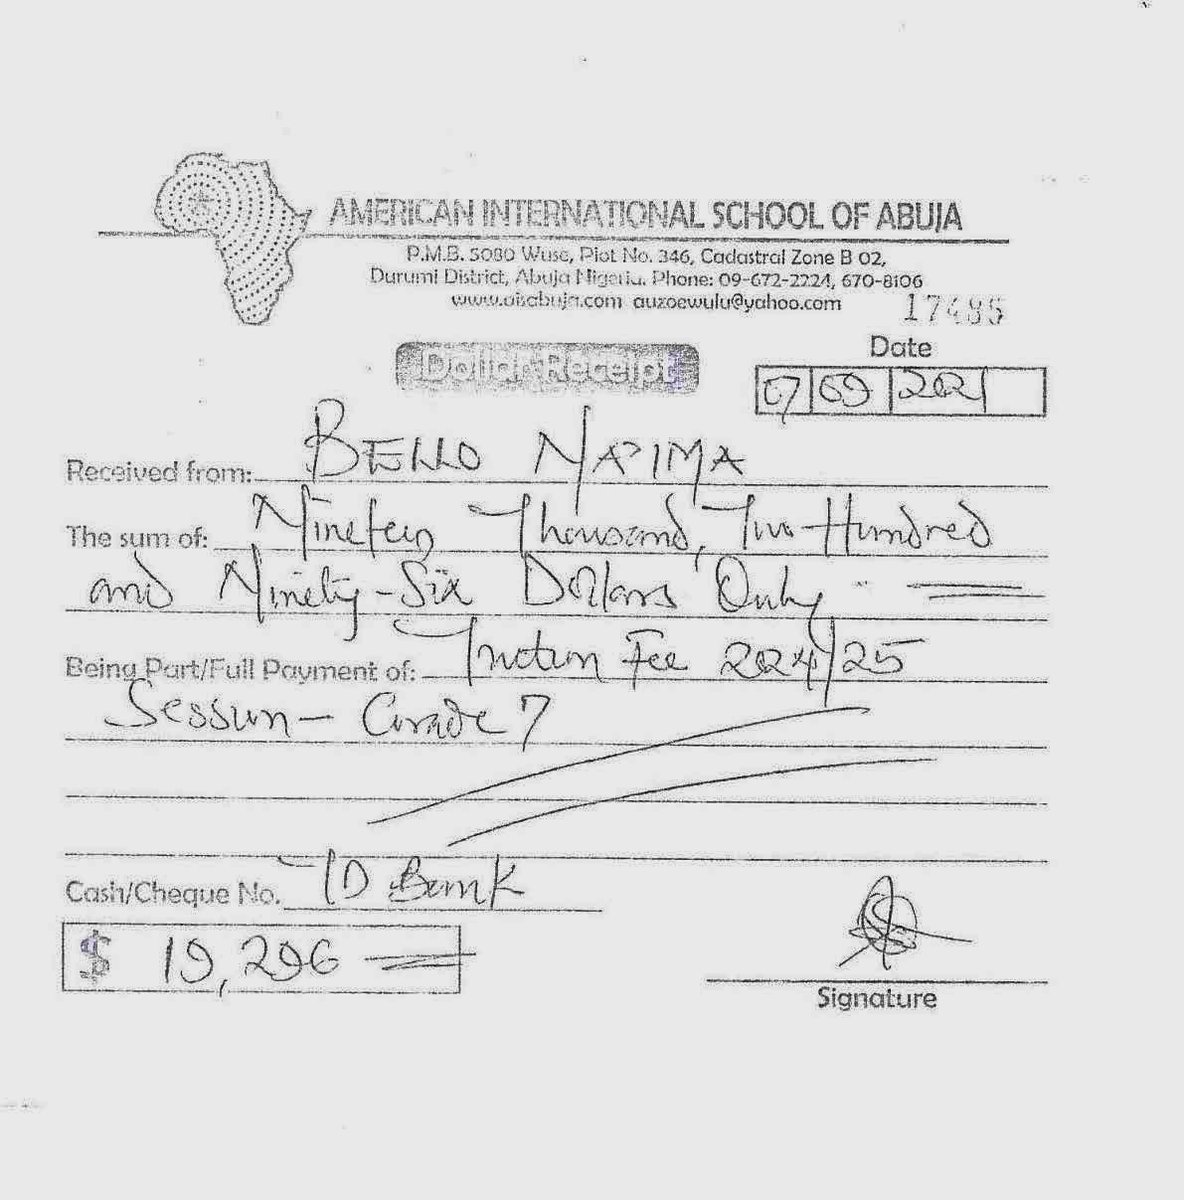 AMERICAN INTERNATIONAL SCHOOL OF ABUJA
P.M.B. 5080 Wuse, Plot No. 346, Cadastral Zone B 02,
Durumi District, Abuja Nigeria. Phone: 09-672-2224, 670-8106
www.aisabuja.com auzoewulu@yahoo.com
17485
Dollar Receipt
Date
07 09 2021
Received from: BELLO NAPIMA
The sum of: Nineteen Thousand, Two Hundred
and Ninety-Six Dollars Only
Being Part/Full Payment of: Tuition Fee 2024/25
Session - Grade 7
Cash/Cheque No. TD Bank
$ 19,296
Signature